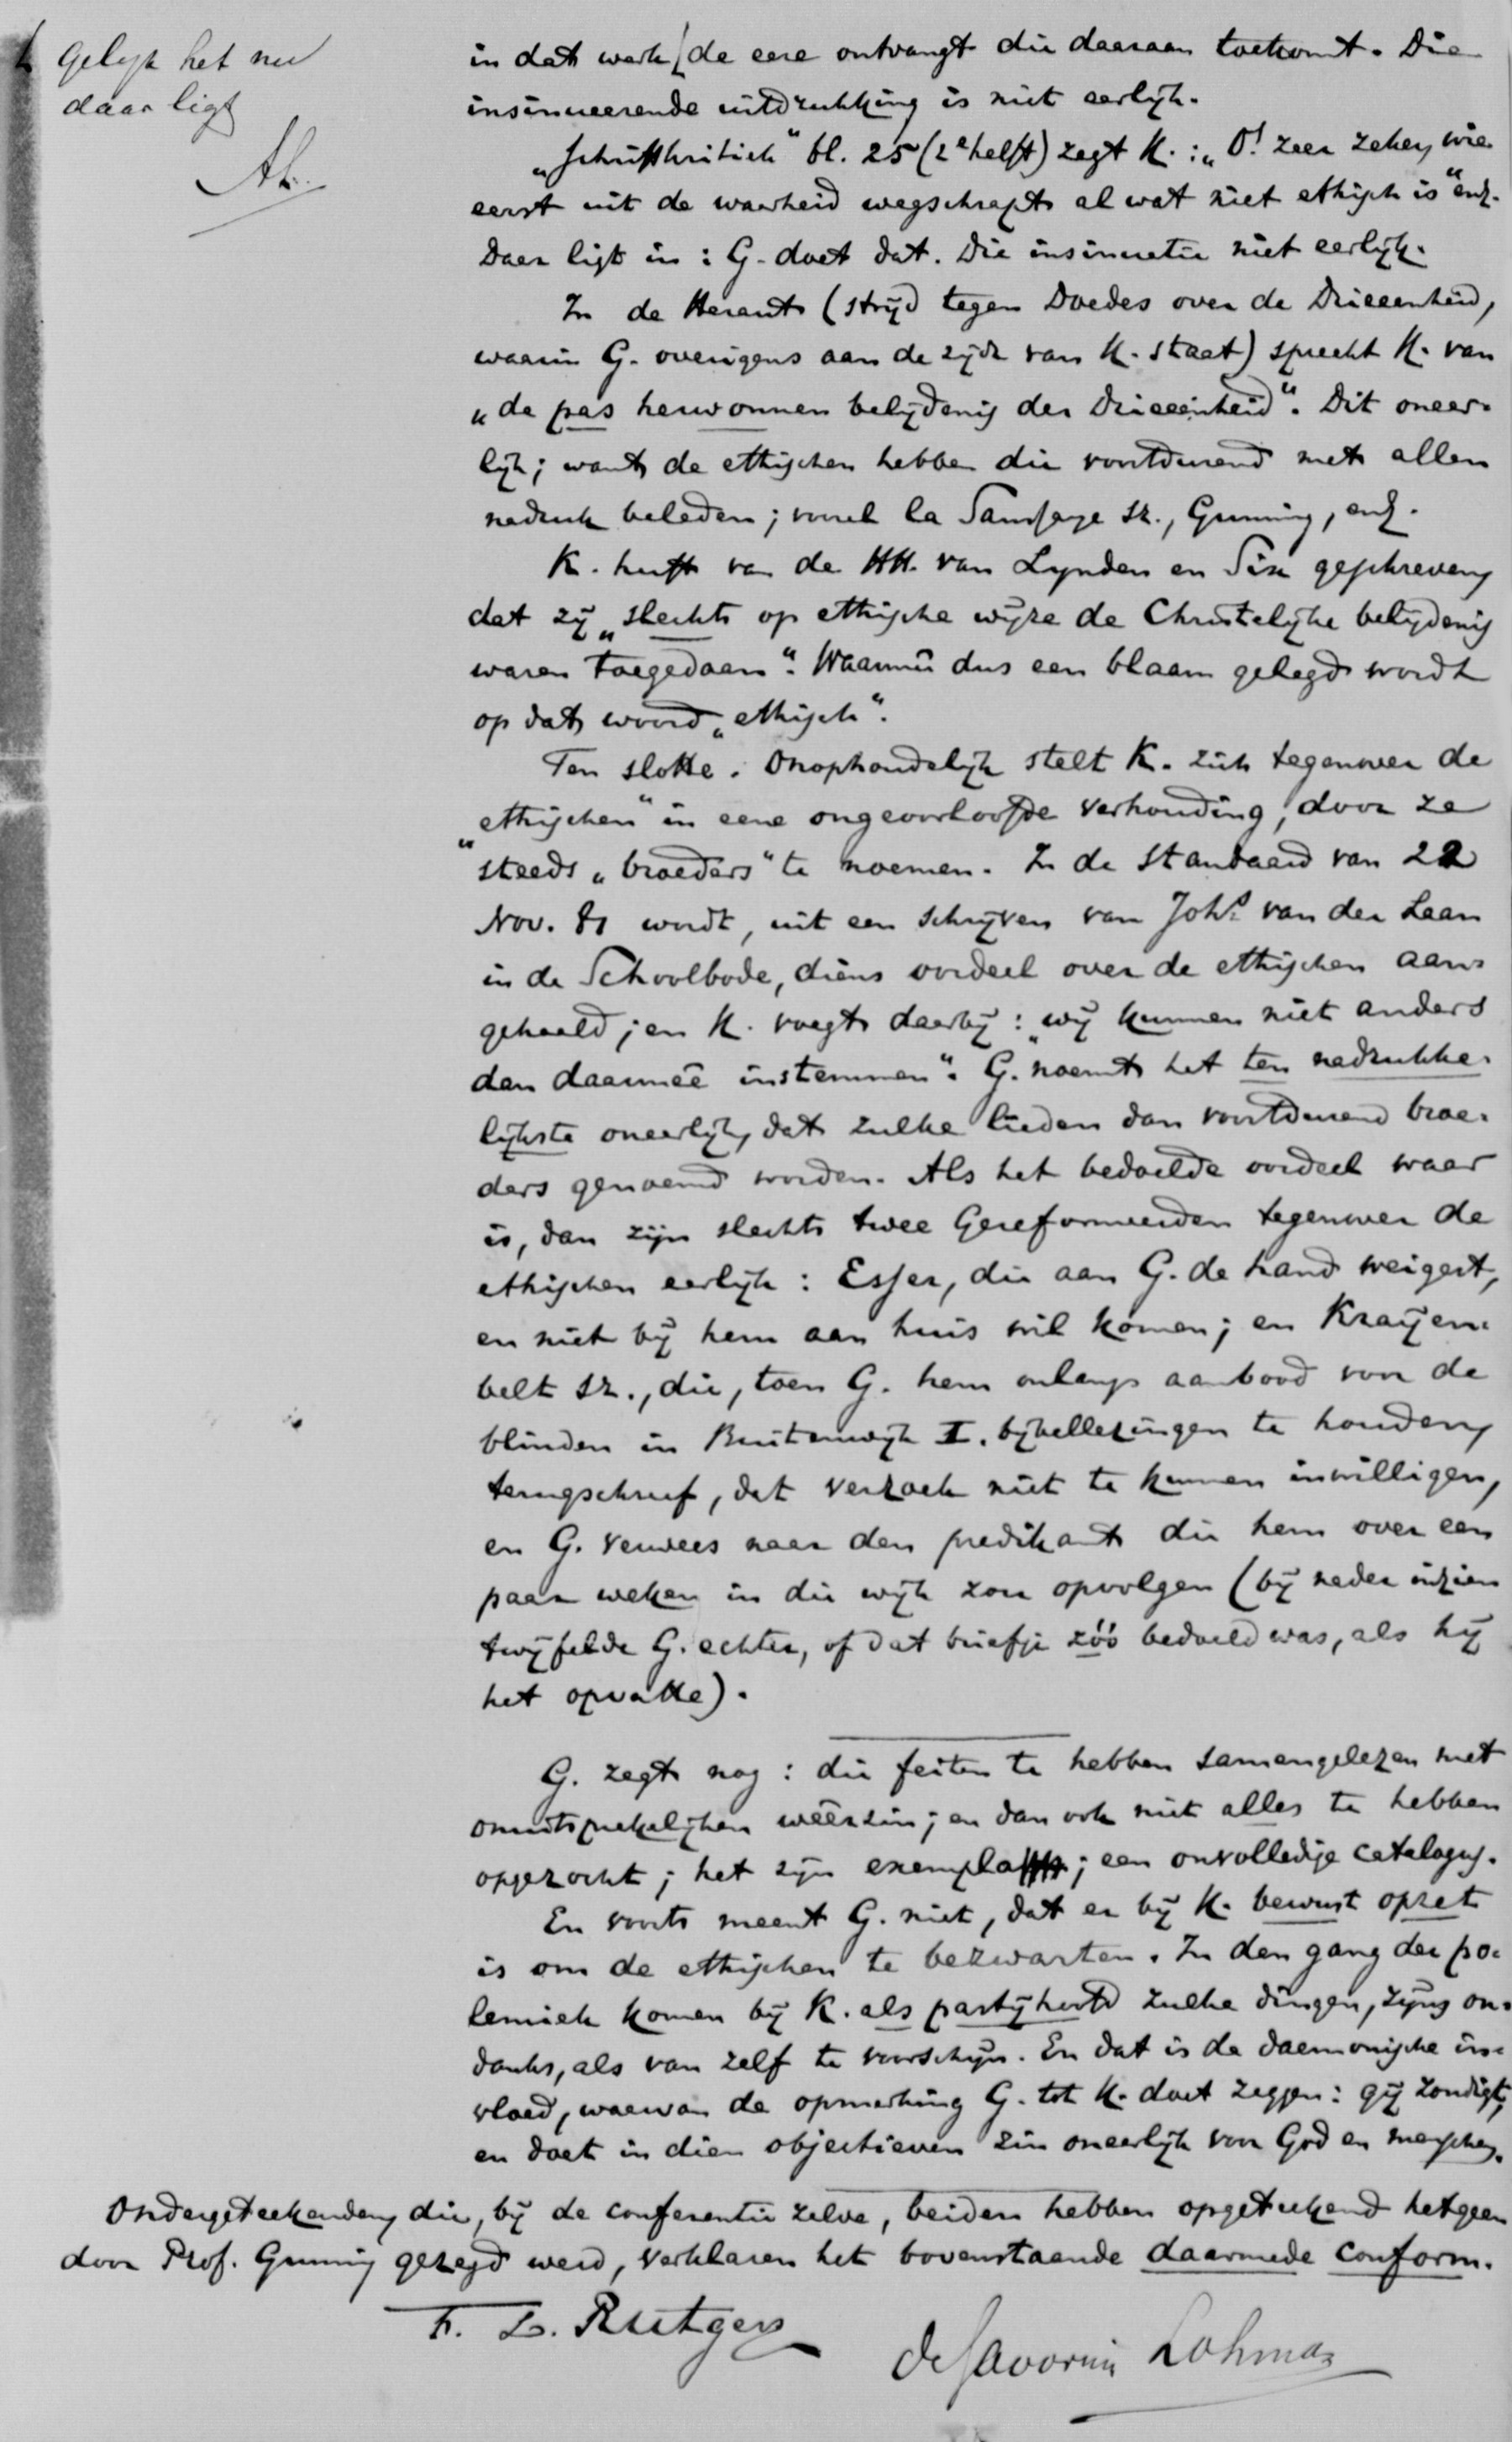 Gelijk het nu
daar ligt
AL.
in dat werk de eere ontvangt die daaraan toekomt. Die
insinueerende uitdrukking is niet eerlijk.
„Schriftkritiek" bl. 25 (2e helft) zegt K.: „O! zeer zeker, wie
eerst uit de waarheid wegschrapt al wat niet ethisch is" enz.
Daar ligt in: G. doet dat. Die insinuatie niet eerlijk.
In de Heraut (strijd tegen Doedes over de Drieëenheid,
waarin G. overigens aan de zijde van K. staat) spreekt K. van
„de pas herwonnen belijdenis der Drieëenheid". Dit oneer-
lijk; want de ethischen hebben die voortdurend met allen
nadruk beleden; vooral la Saussaye Sr., Gunning, enz.
K. heeft van de HH. van Lynden en Six geschreven,
dat zij „slechts op ethische wijze de Christelijke belijdenis
waren toegedaan". Waarmeê dus een blaam gelegd wordt
op dat woord „ethisch".
Ten slotte. Onophoudelijk stelt K. zich tegenover de
„ethischen" in eene ongeoorloofde verhouding, door ze
steeds „broeders" te noemen. In de Standaard van 22
Nov. 81 wordt, uit een schrijven van Johs. van der Laan
in de Schoolbode, diens oordeel over de ethischen aan-
gehaald; en K. voegt daarbij: „wij kunnen niet anders
dan daarmeê instemmen". G. noemt het ten nadrukke-
lijkste oneerlijk, dat zulke lieden dan voortdurend broe-
ders genoemd worden. Als het bedoelde oordeel waar
is, dan zijn slechts twee Gereformeerden tegenover de
ethischen eerlijk: Esser, die aan G. de hand weigert,
en niet bij hem aan huis wil komen; en Kraijen-
belt Sr., die, toen G. hem onlangs aanbood voor de
blinden in Buitenwijk I. bijbellezingen te houden,
terugschreef, dat verzoek niet te kunnen inwilligen,
en G. verwees naar den predikant die hem over een
paar weken in die wijk zou opvolgen (bij nader inzien
twijfelde G. echter, of dat briefje zóó bedoeld was, als hij
het opvatte).
G. zegt nog: die feiten te hebben samengelezen met
onuitsprekelijken weêrzin; en dan ook niet alles te hebben
opgezocht; het zijn exempla; een onvolledige catalogus.
En voorts meent G. niet, dat er bij K. bewust opzet
is om de ethischen te bezwarten. In den gang der po-
lemiek komen bij K. als partijhoofd zulke dingen, zijns on-
danks, als van zelf te voorschijn. En dat is de daemonische in-
vloed, waarvan de opmerking G. tot K. doet zeggen: gij zondigt,
en doet in dien objectieven zin oneerlijk voor God en menschen.
Ondergeteekenden, die, bij de conferentie zelve, beiden hebben opgeteekend hetgeen
door Prof. Gunning gezegd werd, verklaren het bovenstaande daarmede conform.
F. L. Rutgers
de Savornin Lohman